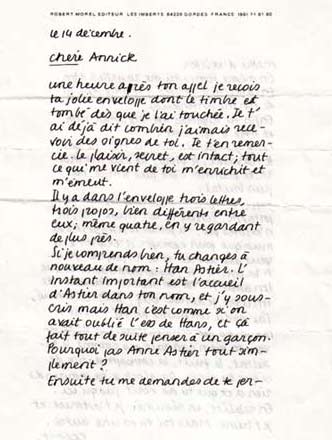 ROBERT MOREL EDITEUR LES IMBERTS 84220 GORDES FRANCE
le 14 décembre.
chère Annick
une heure après ton appel je reçois
ta jolie enveloppe dont le timbre est
tombé dès que je l'ai touchée. Je t'
ai déjà dit combien j'aimais rece-
voir des signes de toi. Je t'en remer-
cie. le plaisir, secret, est intact; tout
ce qui me vient de toi m'enrichit et
m'émeut.
Il y a dans l'enveloppe trois lettres,
trois propos, bien différents entre
eux; même quatre, en y regardant
de plus près.
Si je comprends bien, tu changes à
nouveau de nom: Han Astier. L'
instant important est l'accueil
d'Astier dans ton nom, et j'y sous-
cris mais Han c'est comme si on
avait oublié l'S de Hans, et ça
fait tout de suite penser à un garçon.
Pourquoi pas Anne Astier tout sim-
plement?
Ensuite tu me demandes de te per-